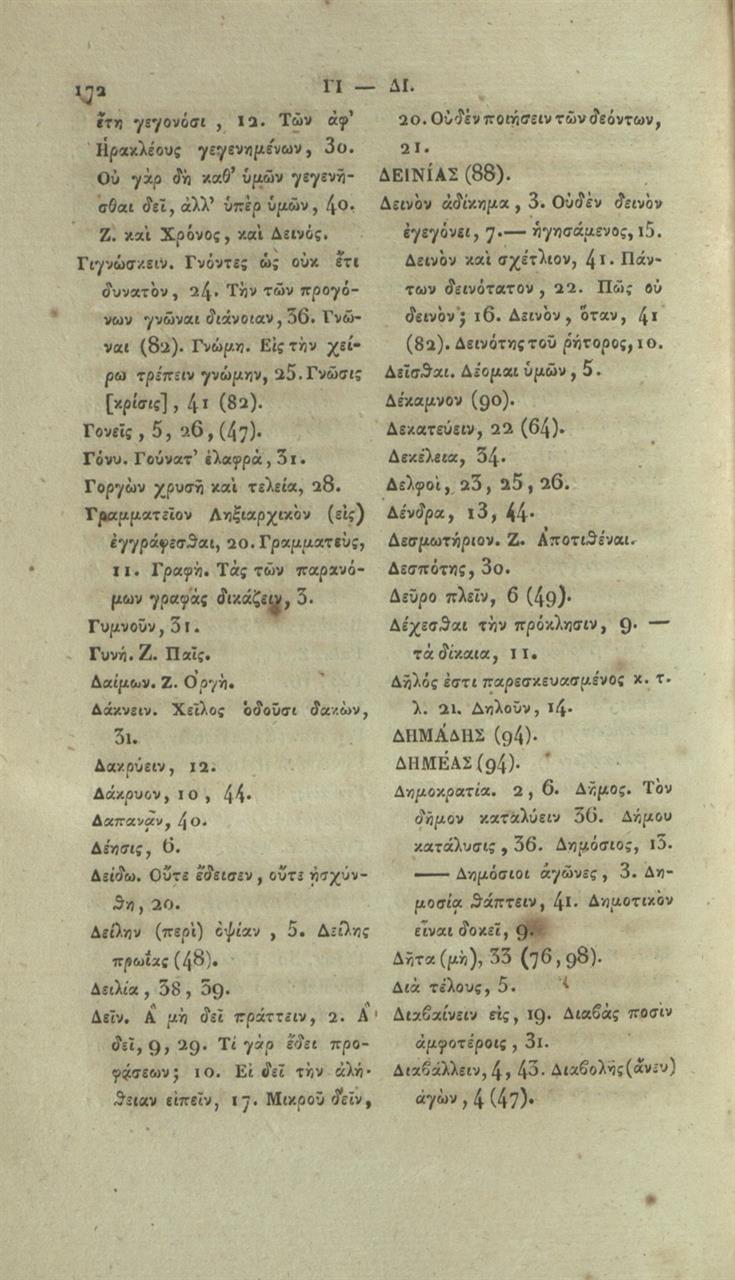 172 ΓΙ — ΔΙ.
ἔτη γεγονόσι , 12. Τῶν ἀφ’
Ἡρακλέους γεγενημένων, 30.
Οὐ γὰρ δὴ καθ’ ὑμῶν γεγενῆ-
σθαι δεῖ, ἀλλ’ ὑπὲρ ὑμῶν, 40.
Ζ. καὶ Χρόνος, καὶ Δεινός.
Γιγνώσκειν. Γνόντες ὡς οὐκ ἔτι
δυνατὸν, 24. Τὴν τῶν προγό-
νων γνῶναι διάνοιαν, 36. Γνῶ-
ναι (82). Γνώμη. Εἰς τὴν χεί-
ρω τρέπειν γνώμην, 25. Γνῶσις
[κρίσις], 41 (82).
Γονεῖς, 5, 26, (47).
Γόνυ. Γούνατ’ ἐλαφρὰ, 31.
Γοργὼν χρυσῆ καὶ τελεία, 28.
Γραμματεῖον Ληξιαρχικὸν (εἰς)
ἐγγράφεσθαι, 20. Γραμματεὺς,
11. Γραφὴ. Τὰς τῶν παρανό-
μων γραφὰς δικάζειν, 3.
Γυμνοῦν, 31.
Γυνή. Ζ. Παῖς.
Δαίμων. Ζ. Ὀργή.
Δάκνειν. Χεῖλος ὀδοῦσι δακὼν,
31.
Δακρύειν, 12.
Δάκρυον, 10, 44.
Δαπανᾷν, 40.
Δέησις, 6.
Δείδω. Οὔτε ἔδεισεν, οὔτε ᾐσχύν-
θη, 20.
Δείλην (περὶ) ὀψίαν , 5. Δείλης
πρωΐας (48).
Δειλία, 38, 39.
Δεῖν. Ἃ μὴ δεῖ πράττειν, 2. Ἃ
δεῖ, 9, 29. Τί γὰρ ἔδει προ-
φάσεων; 10. Εἰ δεῖ τὴν ἀλή-
θειαν εἰπεῖν, 17. Μικροῦ δεῖν,
20. Οὐδὲν ποιήσειν τῶν δεόντων,
21.
ΔΕΙΝΊΑΣ (88).
Δεινὸν ἀδίκημα, 3. Οὐδὲν δεινὸν
ἐγεγόνει, 7.— ἡγησάμενος, 15.
Δεινὸν καὶ σχέτλιον, 41. Πάν-
των δεινότατον, 22. Πῶς οὐ
δεινὸν; 16. Δεινὸν, ὅταν, 41
(82). Δεινότης τοῦ ῥήτορος, 10.
Δεῖσθαι. Δέομαι ὑμῶν, 5.
Δέκαμνον (90).
Δεκατεύειν, 22 (64).
Δεκέλεια, 34.
Δελφοὶ, 23, 25, 26.
Δένδρα, 13, 44.
Δεσμωτήριον. Ζ. Ἀποτιθέναι.
Δεσπότης, 30.
Δεῦρο πλεῖν, 6 (49).
Δέχεσθαι τὴν πρόκλησιν, 9. —
τὰ δίκαια, 11.
Δῆλός ἐστι παρεσκευασμένος κ. τ.
λ. 21. Δηλοῦν, 14.
ΔΗΜΆΔΗΣ (94).
ΔΗΜΈΑΣ (94).
Δημοκρατία. 2, 6. Δῆμος. Τὸν
δῆμον καταλύειν 36. Δήμου
κατάλυσις, 36. Δημόσιος, 13.
—— Δημόσιοι ἀγῶνες, 3. Δη-
μοσίᾳ θάπτειν, 41. Δημοτικὸν
εἶναι δοκεῖ, 9.
Δῆτα (μὴ), 33 (76, 98).
Διὰ τέλους, 5.
Διαβαίνειν εἰς, 19. Διαβὰς ποσὶν
ἀμφοτέροις, 31.
Διαβάλλειν, 4, 43. Διαβολῆς (ἄνευ)
ἀγὼν, 4 (47).